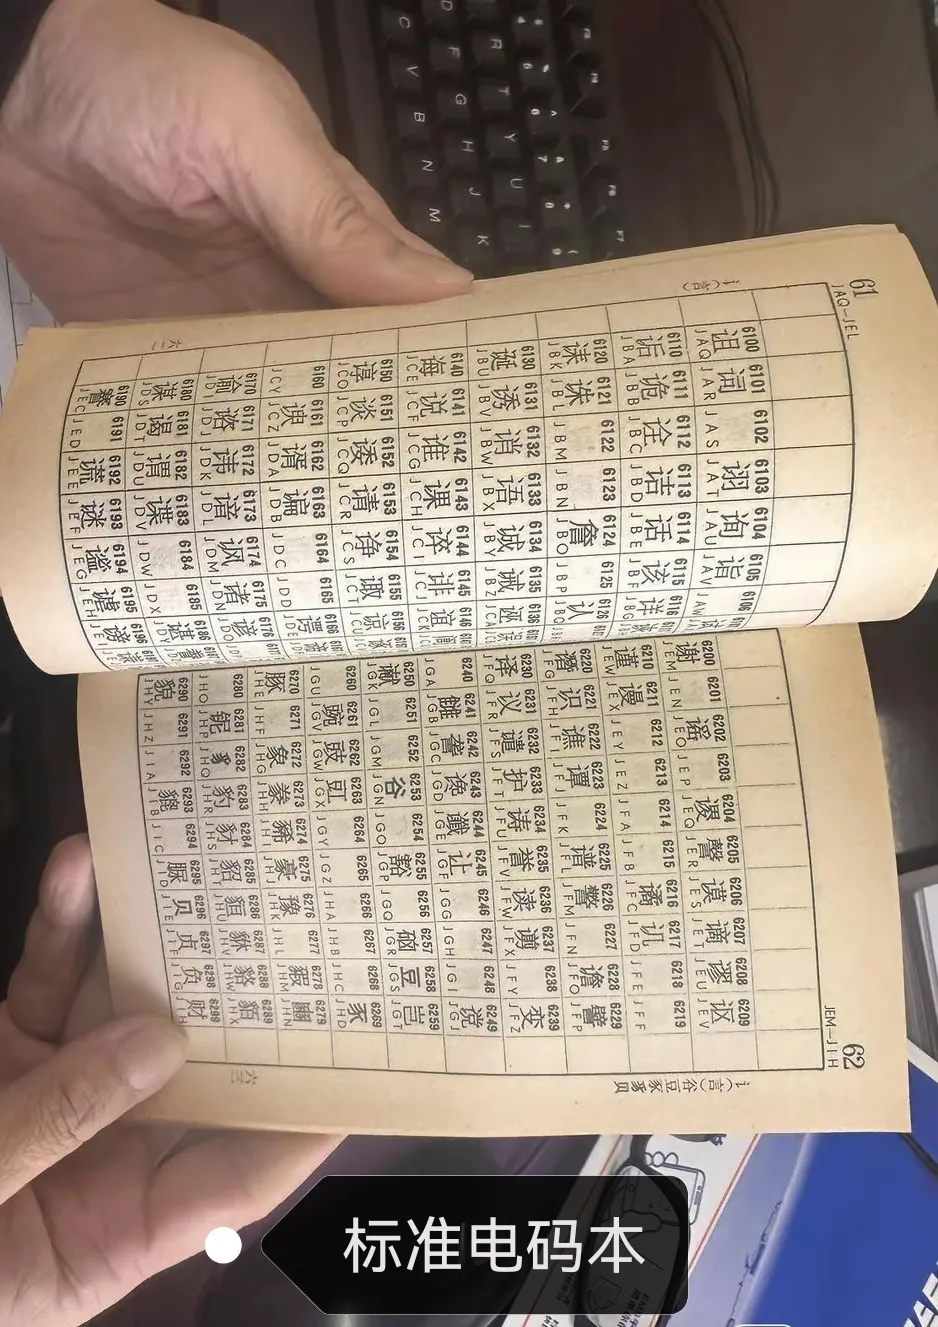 61
JAQ-JEL
讠(言)
6100 6101 6102 6103 6104 6105 6106
诅 词 诩 询 诣
JAQ JAR JAS JAT JAU JAV JAW
6110 6111 6112 6113 6114 6115 6116
诟 诡 诠 诘 话 该 详
JBA JBB JBC JBD JBE JBF JBG
6120 6121 6122 6123 6124 6125 6126
诔 诛 詹 认
JBK JBL JBM JBN JBO JBP JBQ
6130 6131 6132 6133 6134 6135 6136
诞 诱 诮 语 诚 诫 诬
JBU JBV JBW JBX JBY JBZ JCA
6140 6141 6142 6143 6144 6145 6146
诲 说 谁 课 谇 诽 谊
JCE JCF JCG JCH JCI JCJ JCK
6150 6151 6152 6153 6154 6155 6156
谆 谈 诿 请 诤 诹 谅
JCO JCP JCQ JCR JCS JCT JCU
6160 6161 6162 6163 6164 6165 6166
谀 谞 谝 谔
JCY JCZ JDA JDB JDC JDD JDE
6170 6171 6172 6173 6174 6175 6176
谕 谘 讳 谙 讽 诸 谚
JDI JDJ JDK JDL JDM JDN JDO
6180 6181 6182 6183 6184 6185 6186
谋 谒 谓 谍 谌
JDS JDT JDU JDV JDW JDX
6190 6191 6192 6193 6194 6195 6196
謇 谎 谜 谧 谑 谤
JEC JED JEE JEF JEG JEH
六一
62
JEM-JIH
讠(言)谷豆豕豸贝
6200 6201 6202 6203 6204 6205 6206 6207 6208 6209
谢 谣 谡 謦 谟 谪 谬 讴
JEN JEO JEP JEQ JER JES JET JEU JEV
6210 6211 6212 6213 6214 6215 6216 6217 6218 6219
谨 谩 谲 讥
JEW JEX JEY JEZ JFA JFB JFC JFD JFE JFF
6220 6221 6222 6223 6224 6225 6226 6227 6228 6229
谮 识 谯 谭 谱 警 谵 譬
JFH JFI JFJ JFK JFL JFM JFN JFO JFP
6230 6231 6232 6233 6234 6235 6236 6237 6238 6239
译 议 谴 护 诪 誉 读 谫 变
JFQ JFR JFS JFT JFU JFV JFW JFX JFY JFZ
6240 6241 6242 6243 6244 6245 6246 6247 6248 6249
雠 詟 谗 谶 让 谠
JGA JGB JGC JGD JGE JGF JGG JGH JGI JGJ
6250 6251 6252 6253 6254 6255 6256 6257 6258 6259
谳 谷 豁 谼 豆 岂
JGK JGL JGM JGN JGO JGP JGQ JGR JGS JGT
6260 6261 6262 6263 6264 6265 6266 6267 6268 6269
豌 豉 豇 豕
JGU JGV JGW JGX JGY JGZ JHA JHB JHC JHD
6270 6271 6272 6273 6274 6275 6276 6277 6278 6279
豚 象 豢 豨 豪 豫 豭 豳
JHE JHF JHG JHH JHI JHJ JHK JHL JHM JHN
6280 6281 6282 6283 6284 6285 6286 6287 6288 6289
豸 豹 豺 貂 貆 貅 貉 貊
JHO JHP JHQ JHR JHS JHT JHU JHV JHW JHX
6290 6291 6292 6293 6294 6295 6296 6297 6298 6299
貌 貔 贝 贞 负 财
JHY JHZ JIA JIB JIC JID JIE JIF JIG JIH
六二
标准电码本